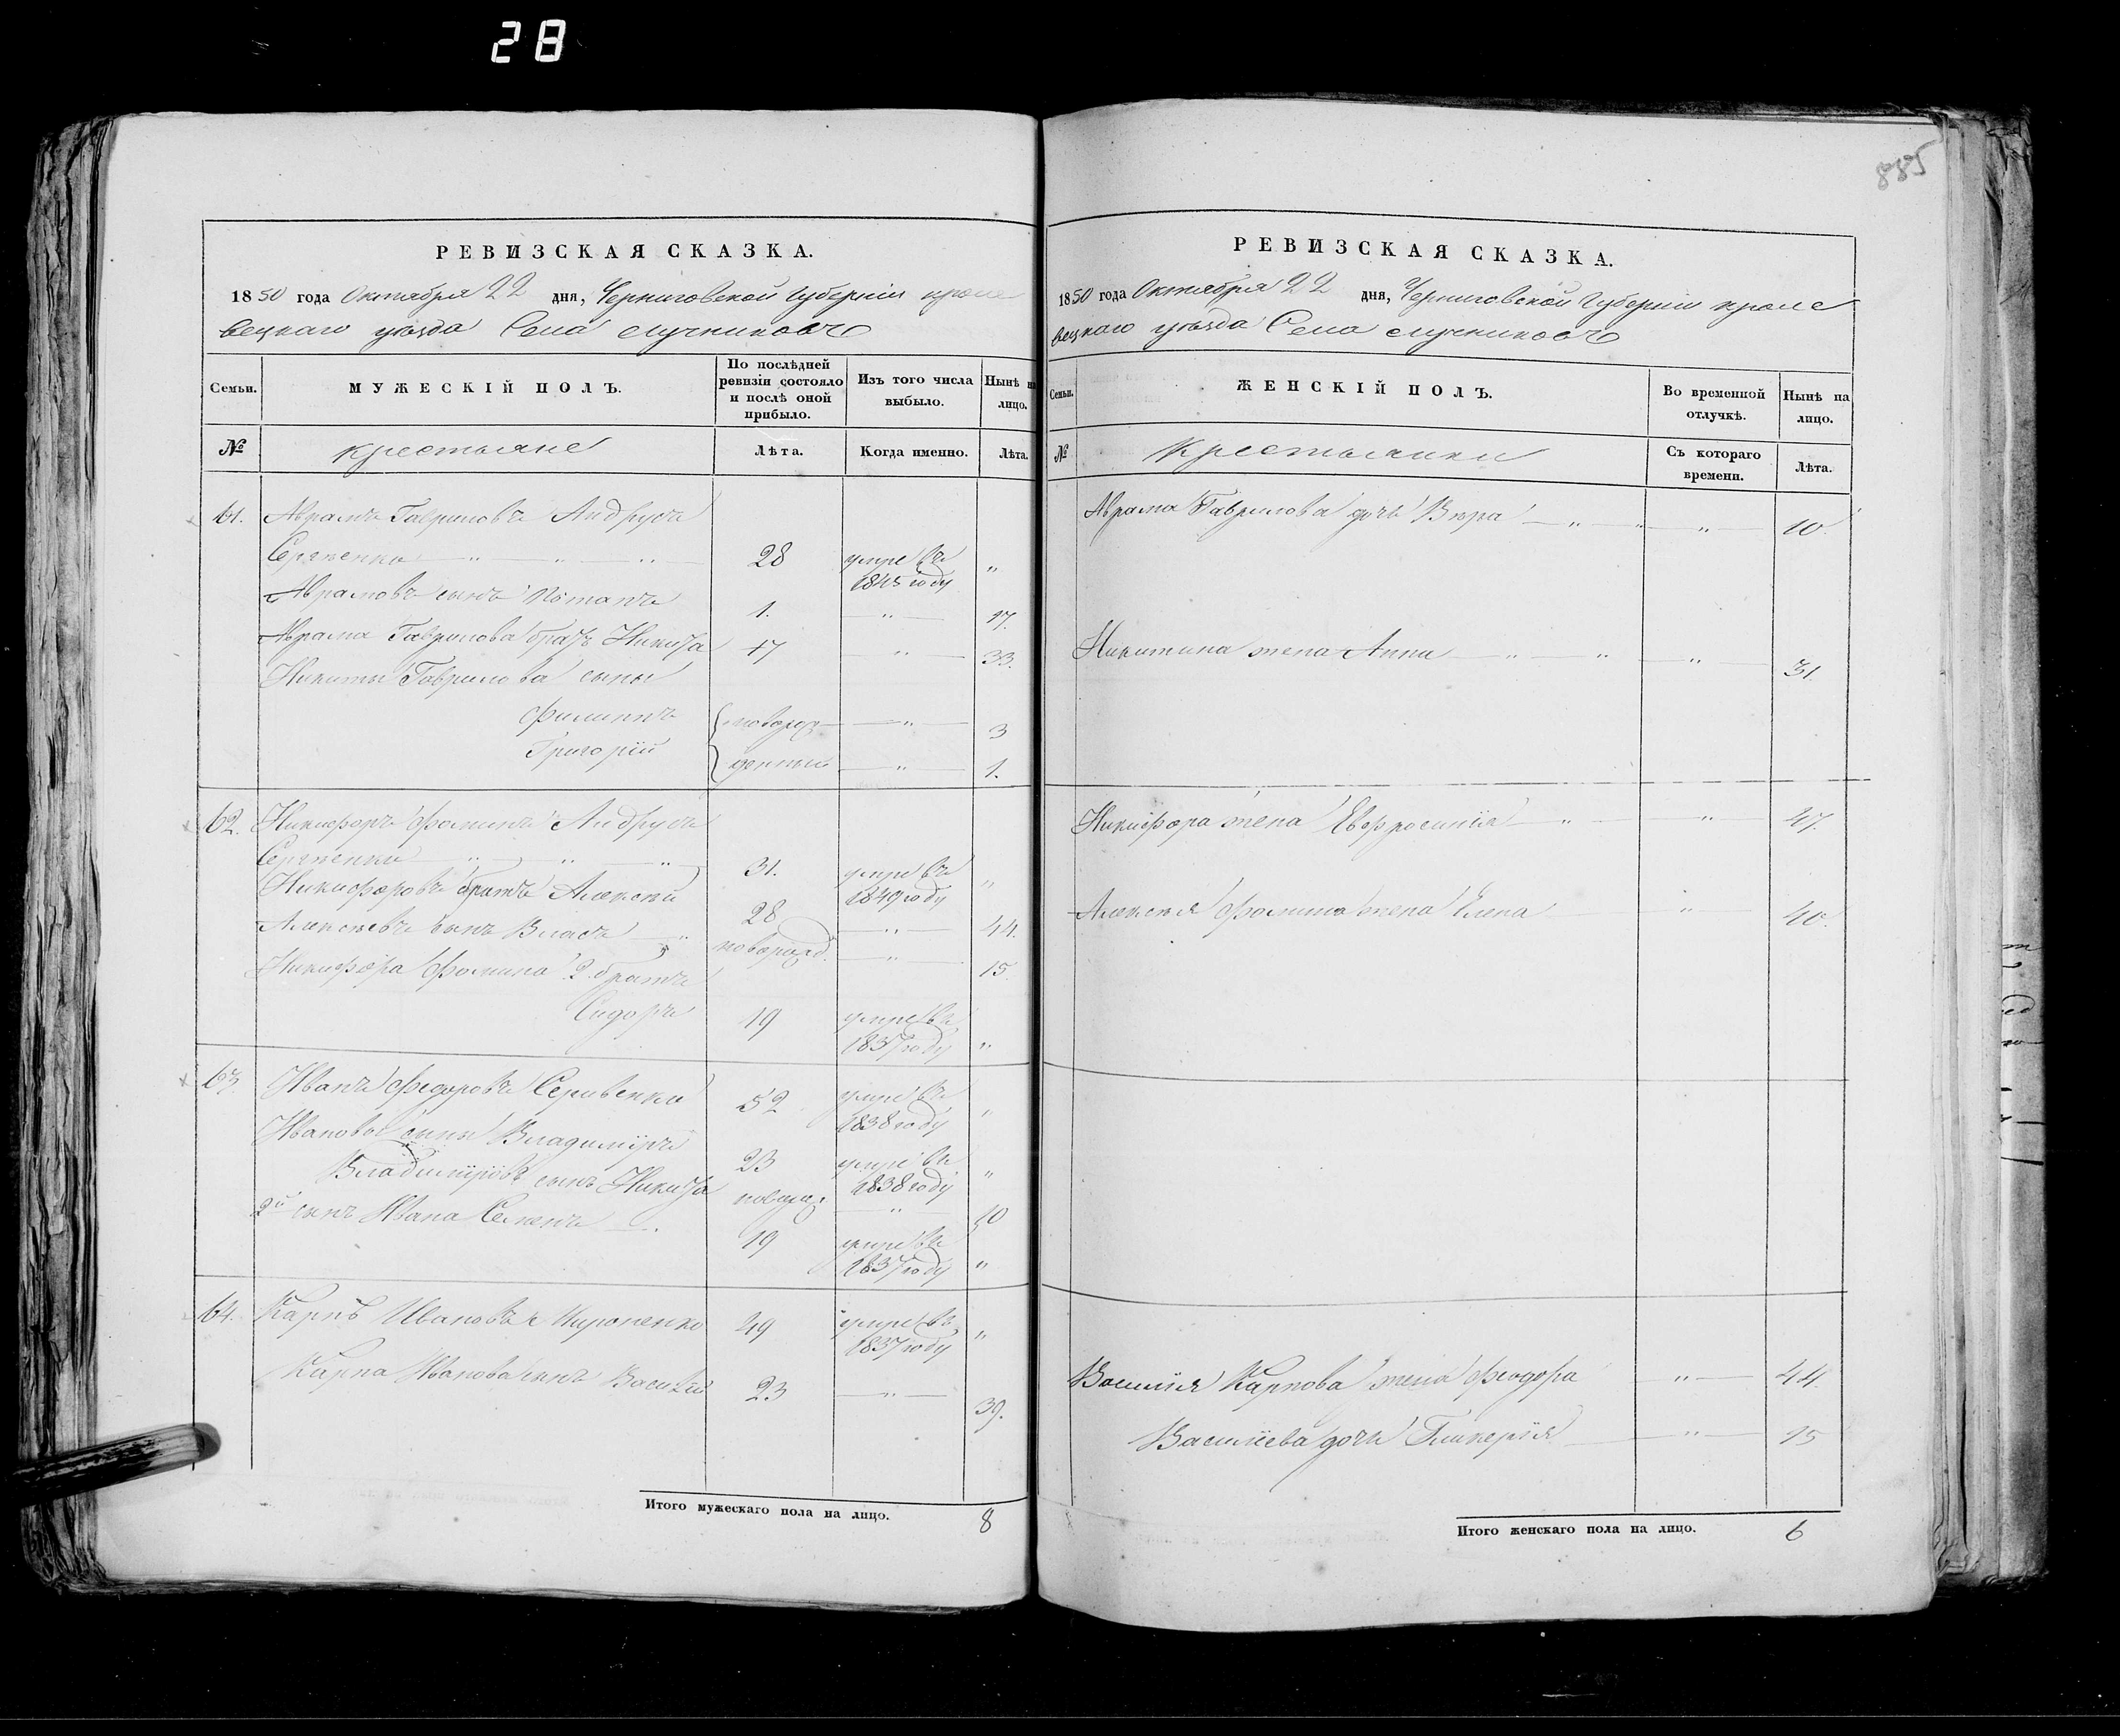 28
885
РЕВИЗСКАЯ СКАЗКА.
1850 года Октября 22 дня, Черниговской Губерніи кроле
вецкаго уѣзда Села Мучниковъ
Семьи.
МУЖЕСКІЙ ПОЛЪ.
По послѣдней ревизіи состояло и послѣ оной прибыло.
Изъ того числа выбыло.
Нынѣ на лицо.
№
крестьяне
Лѣта.
Когда именно.
Лѣта.
61. Аврамъ Гавриловъ Андрусь
28 умре въ 1845 году "
Аврамовъ сынъ Потапъ 1. " 17.
Аврама Гаврилова братъ Никита 17 " 33.
Никиты Гаврилова сыны
Филиппъ новорож " 3
Григорій денные " 1.
62. Никифоръ Фоминъ Андрусь
31. умре въ 1849 году "
Никифоровъ братъ Алексѣй 28 " 44.
Алексѣевъ сынъ Власъ " новорожд. " 15
Никифора Фомина 2 братъ
Сидоръ 19 умре въ 1837 году "
63. Иванъ Федоровъ 52 умре въ 1838 году "
Ивановы сыны Владимїръ 23 умре въ 1838 году "
Владимїровъ сынъ Никита новорож "
2й сынъ Ивана Семенъ 19 умре въ 1837 году "
64. Карпъ Ивановъ Мироненко 49 умре въ 1837 году "
Карпа Иванова сынъ Василій 23 " 39.
Итого мужескаго пола на лицо. 8
РЕВИЗСКАЯ СКАЗКА.
1850 года Октября 22 дня, Черниговской Губерніи кроле
вецкаго уѣзда Села Мучниковъ
Семьи.
ЖЕНСКІЙ ПОЛЪ.
Во временной отлучкѣ.
Нынѣ на лицо.
№
крестьянки
Съ котораго времени.
Лѣта.
Аврама Гаврилова дочь Вѣра " " " 10.
Никитина жена Анна " " " 31
Никифора жена Евфросинія " " 47.
Алексѣя Фомина жена Елена " 40.
Василія Карпова жена Феодора " 44.
Василіева дочь Гликерія " 15
Итого женскаго пола на лицо. 6